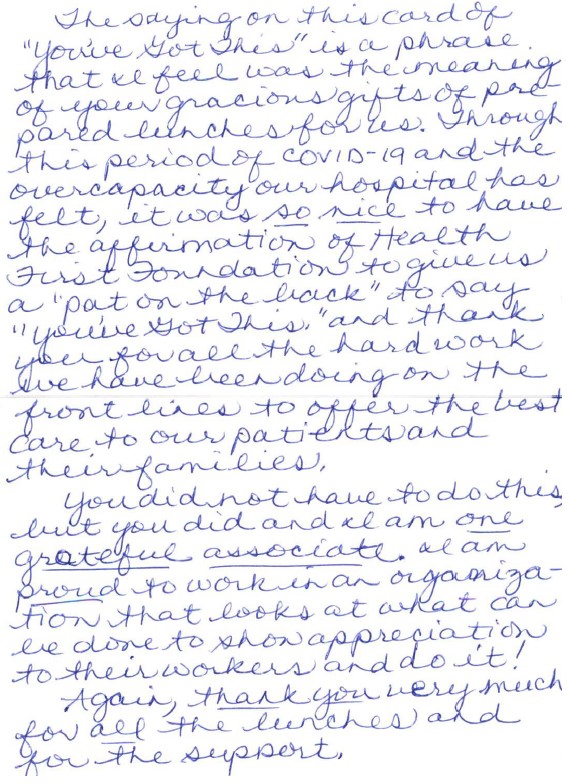 The saying on this card of
"You've Got This" is a phrase
that I feel was the meaning
of your gracious gifts of pre-
pared lunches for us. Through
this period of COVID-19 and the
overcapacity our hospital has
felt, it was so nice to have
the affirmation of Health
First Foundation to give us
a "pat on the back" to say
"you've Got This," and thank
you for all the hard work
we have been doing on the
front lines to offer the best
care to our patients and
their families.
You did not have to do this,
but you did and I am one
grateful associate. I am
proud to work in an organiza-
tion that looks at what can
be done to show appreciation
to their workers and do it!
Again, thank you very much
for all the lunches and
for the support.